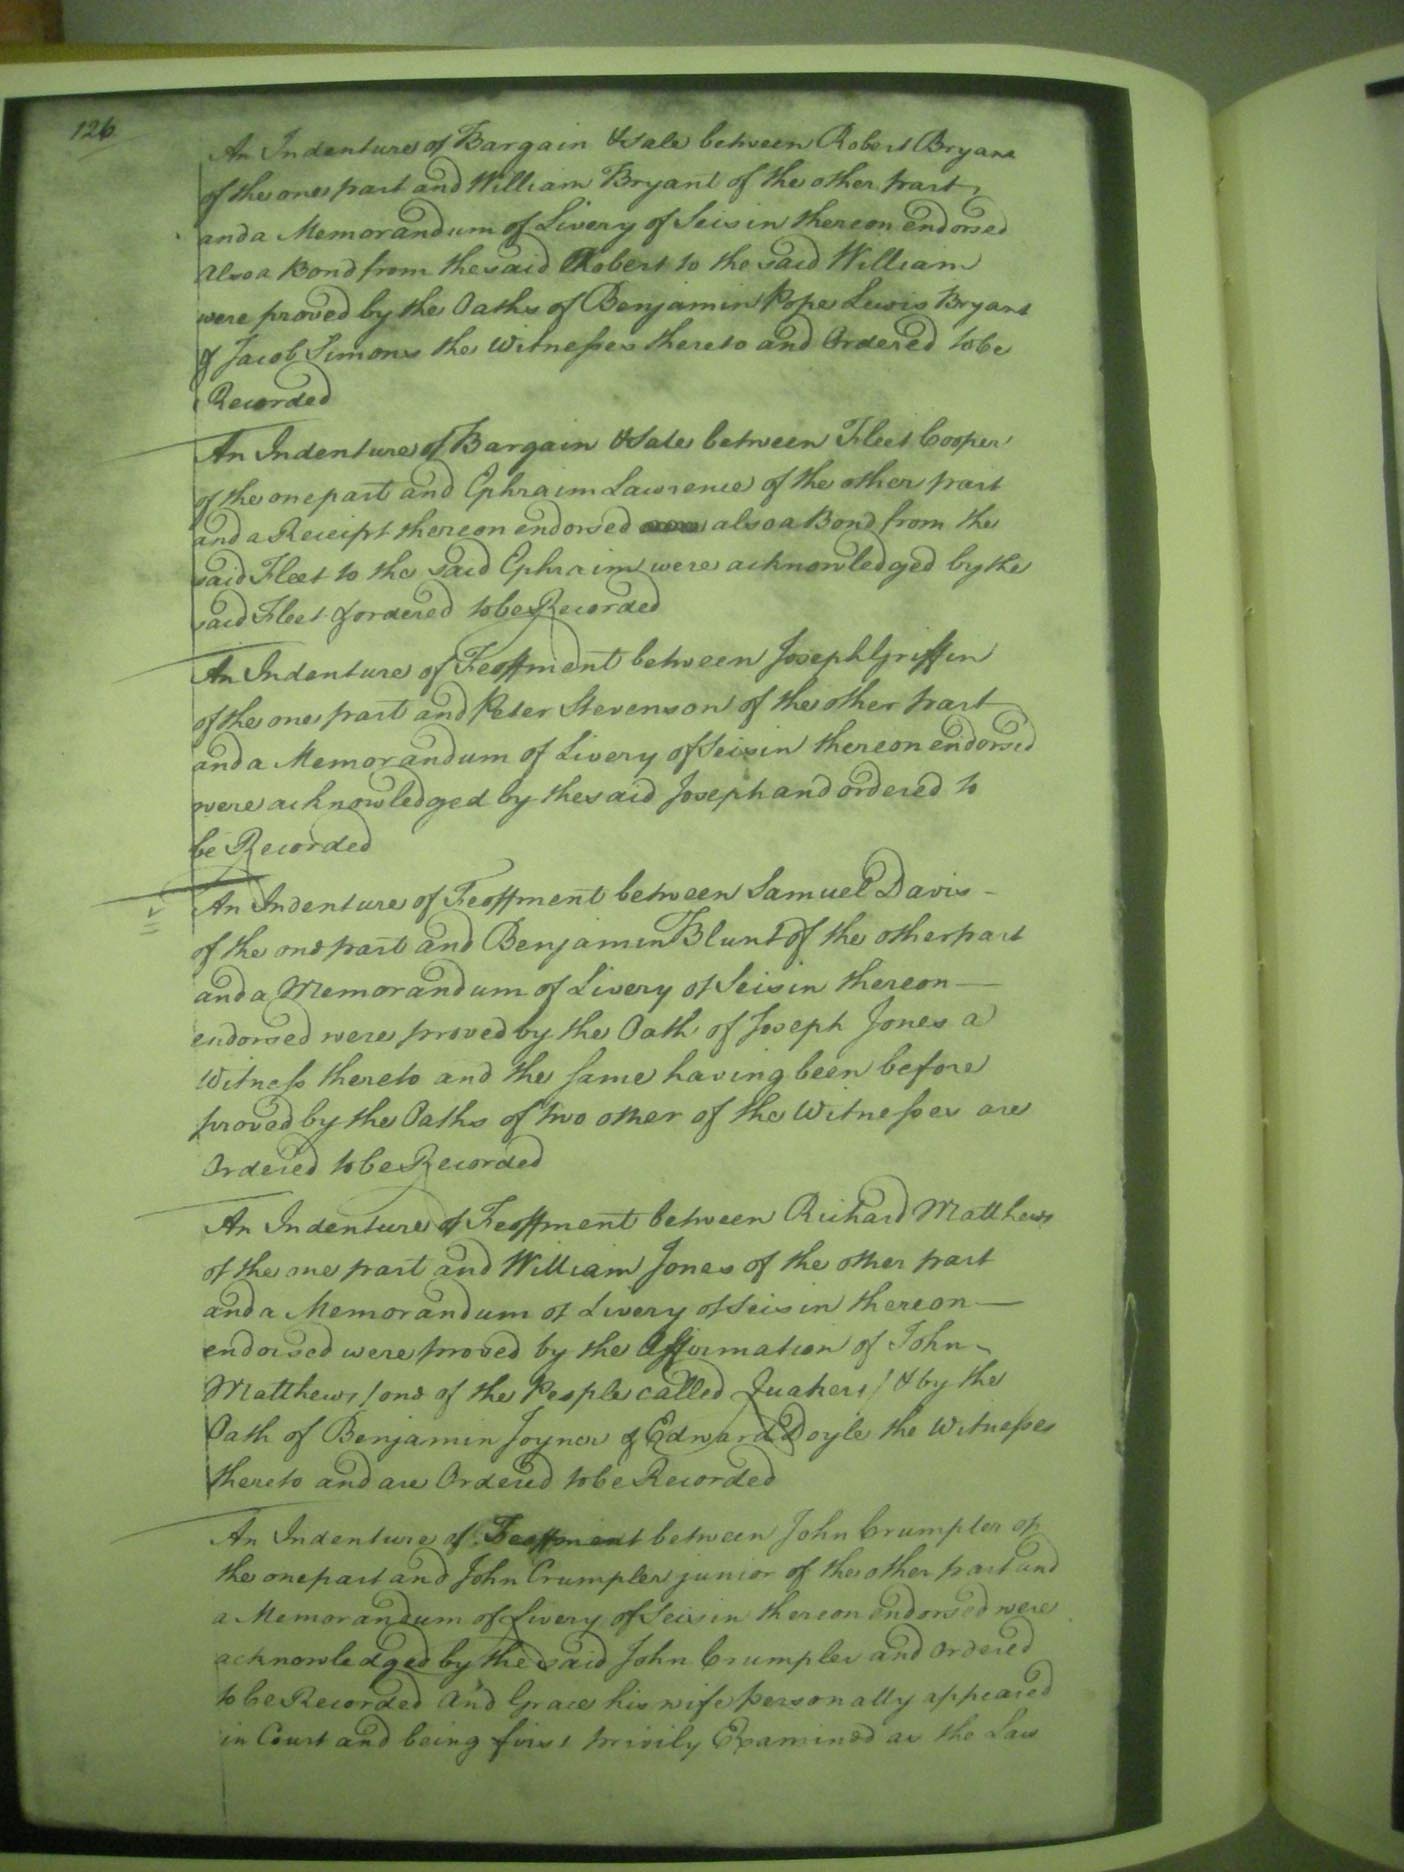 126
An Indenture of Bargain & Sale between Robert Bryant
of the one part and William Bryant of the other part
and a Memorandum of Livery of Seisin thereon endorsed
also a Bond from the said Robert to the said William
were proved by the Oaths of Benjamin Pope Lewis Bryant
& Jacob Simons the Witnesses thereto and Ordered to be
Recorded
An Indenture of Bargain & Sale between Fleet Cooper
of the one part and Ephraim Lawrence of the other part
and a Receipt thereon endorsed also a Bond from the
said Fleet to the said Ephraim were acknowledged by the
said Fleet & ordered to be Recorded
An Indenture of Feoffment between Joseph Griffin
of the one part and Peter Stevenson of the other part
and a Memorandum of Livery of Seisin thereon endorsed
were acknowledged by the said Joseph and ordered to
be Recorded
An Indenture of Feoffment between Samuel Davis -
of the one part and Benjamin Blunt of the other part
and a Memorandum of Livery of Seisin thereon —
endorsed were proved by the Oath of Joseph Jones a
Witness thereto and the same having been before
proved by the Oaths of two other of the Witnesses are
Ordered to be Recorded
An Indenture of Feoffment between Richard Matthews
of the one part and William Jones of the other part
and a Memorandum of Livery of Seisin thereon —
endorsed were proved by the Affirmation of John
Matthews / one of the People called Quakers / & by the
Oath of Benjamin Joyner & Edward Doyle the Witnesses
thereto and are Ordered to be Recorded
An Indenture of Feoffment between John Crumpler of
the one part and John Crumpler junior of the other part and
a Memorandum of Livery of Seisin thereon endorsed were
acknowledged by the said John Crumpler and Ordered
to be Recorded And Grace his wife personally appeared
in Court and being first privily Examined as the Law